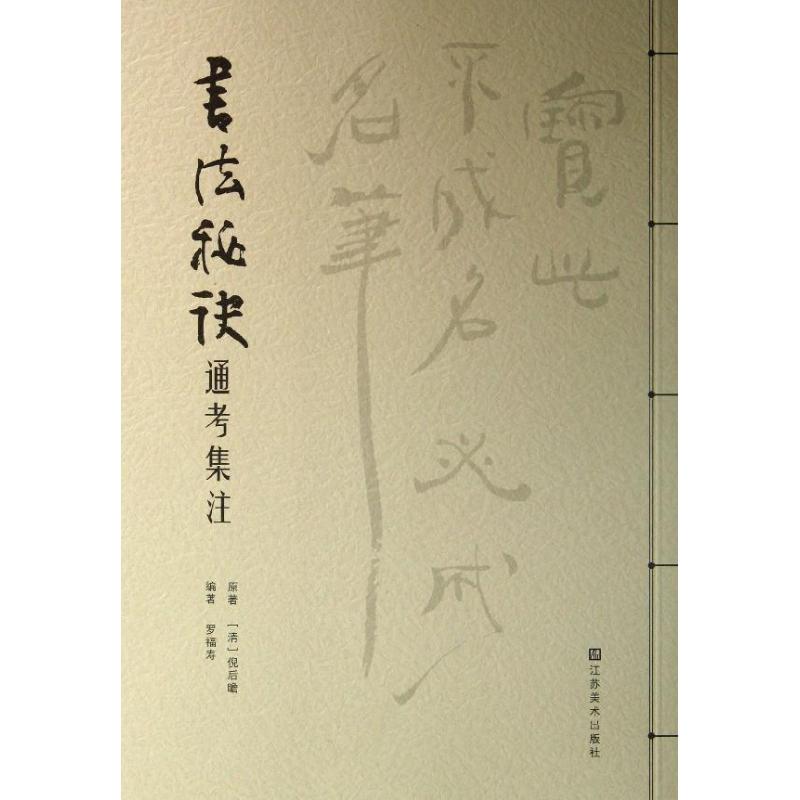 書法秘诀
通考集注
原著 [清]倪后瞻
编著 罗福寿
寶此
不成名必成
名筆
江苏美术出版社